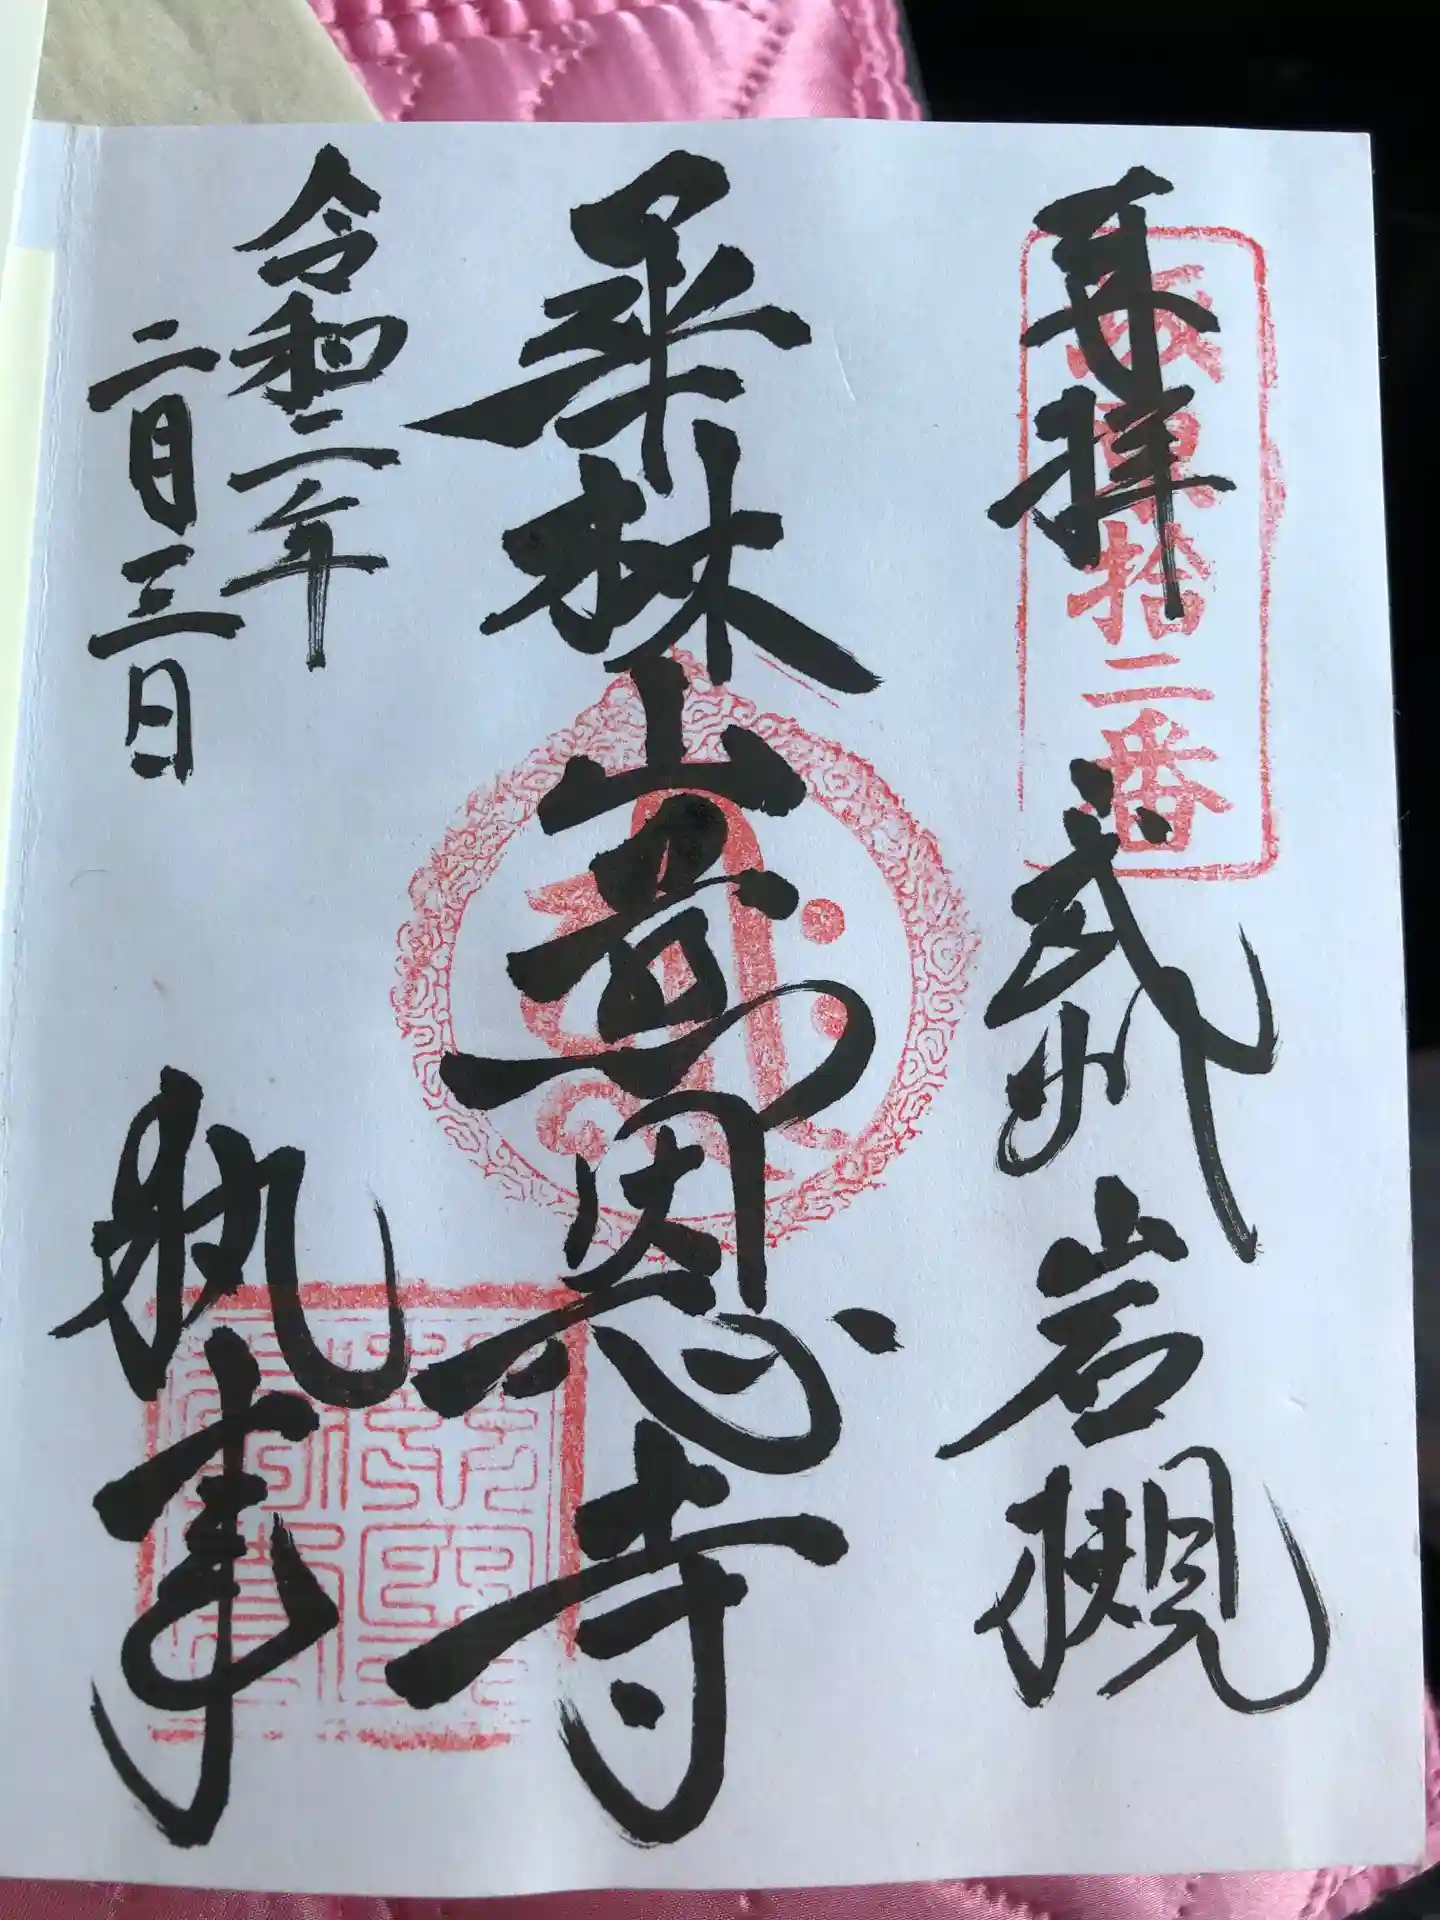 奉拝　武州　岩槻
坂東拾二番
華林山慈恩寺
令和二年
二月三日
執事